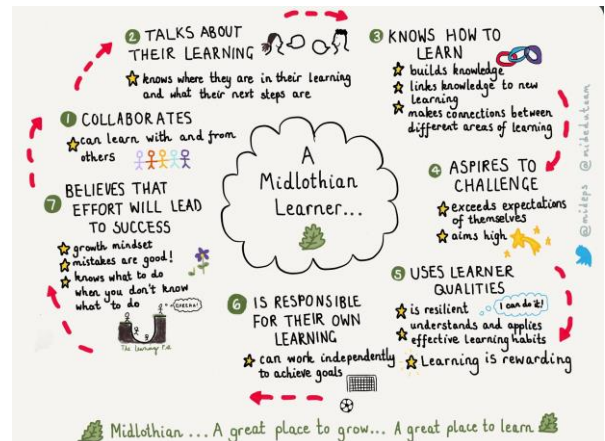 A
Midlothian
Learner...
1 COLLABORATES
can learn with and from
others
2 TALKS ABOUT
THEIR LEARNING
knows where they are in their learning
and what their next steps are
3 KNOWS HOW TO
LEARN
builds knowledge
links knowledge to new
learning
makes connections between
different areas of learning
4 ASPIRES TO
CHALLENGE
exceeds expectations
of themselves
aims high
5 USES LEARNER
QUALITIES
is resilient
I can do it!
understands and applies
effective learning habits
Learning is rewarding
6 IS RESPONSIBLE
FOR THEIR OWN
LEARNING
can work independently
to achieve goals
7 BELIEVES THAT
EFFORT WILL LEAD
TO SUCCESS
growth mindset
mistakes are good!
knows what to do
when you don't know
what to do
EUREKA!
The Learning Pit
@mideps @mideduteam
Midlothian... A great place to grow... A great place to learn